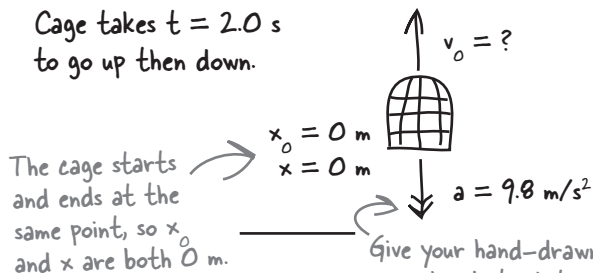 Cage takes t = 2.0 s
to go up then down.
v₀ = ?
x₀ = 0 m
x = 0 m
a = 9.8 m/s²
The cage starts
and ends at the
same point, so x₀
and x are both 0 m.
Give your hand-drawn